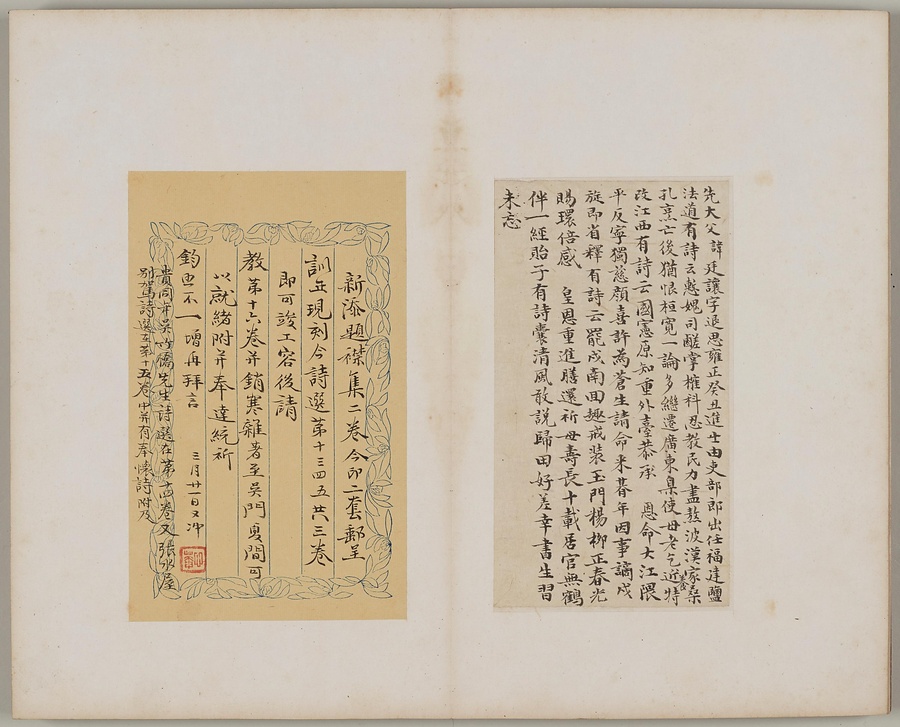 先大父諱廷讓字退思雍正癸丑進士由吏部郎出任福建鹽
法道有詩云愁媿司鹺掌榷科忍教民力盡熬波漢家桑
孔烹亡後猶恨桓寬一論多繼遷廣東臬使母老乞近特
改江西有詩云國憲原知重外臺恭承 恩命大江隈
平反寧獨慈顏喜許為蒼生請命來暮年因事謫戍
旋即省釋有詩云罷戍南回趣戒裝玉門楊柳正春光
賜環倍感 皇恩重進膳還祈母壽長十載居官無鶴
伴一經貽子有詩囊清風敢說歸田好差幸書生習
未忘
新添題襟集二卷今印二套郵呈
訓正現刻今詩選第十三四五共三卷
即可竣工容後請
教第十六卷并銷寒雜著至吳門夏間可
以就緒附并奉達統祈
鈞照不一增再拜言 三月廿一日又沖
貴同年吳竹橋先生詩選在第十四卷又張水屋
別駕詩選至第十五卷中并有奉懷詩附及